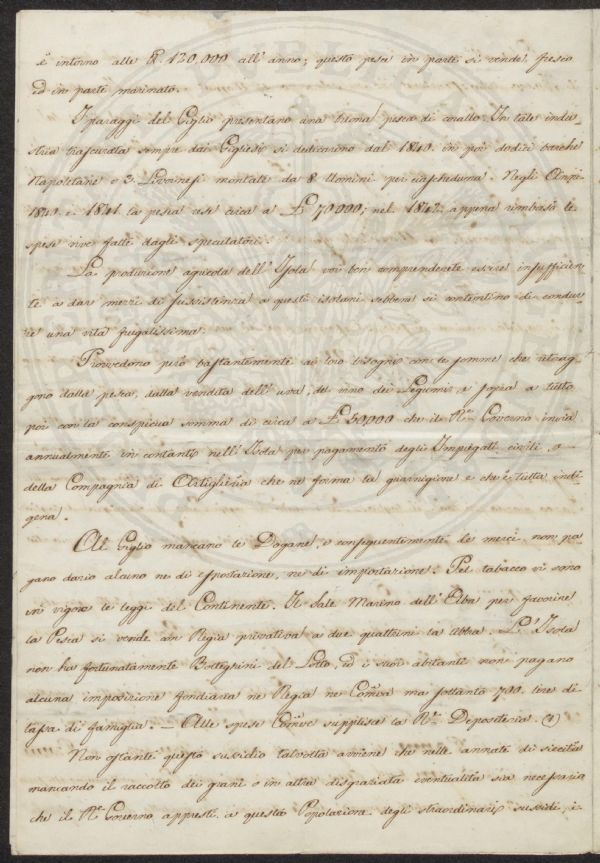 è intorno alle £. 120,000 all' anno; questo pesce in parte si vende fresco
ed in parte marinato.
I paraggi del Giglio presentano una buona pesca di corallo. In tale indu-
stria trascurata sempre dai Gigliesi si dedicarono dal 1840. in poi dodici barche
Napoletane e 3. Livornesi montate da 8 Uomini per ciascheduna. Negli Anni
1840. e 1841. la pesca rese circa a £ 70000; nel 1842. appena rimborsò le
spese vive fatte dagli speculatori.
La produzione agricola dell' Isola voi ben comprenderete essere insufficien-
te a dar mezzi di sussistenza a questi isolani sebbene si contentino di condur
re una vita frugalissima.
Provvedono però bastantemente ai loro bisogni con le somme che ritrag
gono dalla pesca, dalla vendita dell' uva, del vino dei Legumi e sopra a tutto
poi con la conspicua somma di circa a £ 50000 che il R.º Governo invia
annualmente in contante nell' Isola per pagamento degli Impiegati civili, e
della Compagnia di Artiglieria che ne forma la guarnigione e che è tutta indi
gena.
Al Giglio mancano le Dogane, e conseguentemente le merci non pa
gano dazio alcuno ne di esportazione, ne di importazione. Pel tabacco vi sono
in vigore le leggi del Continente. Il Sale Marino dell' Elba per favorire
la Pesca si vende in Regia privativa a due quattrini la libbra. L' Isola
non ha fortunatamente Botteghini del Lotto, ed i suoi abitanti non pagano
alcuna imposizione fondiaria ne Regia ne Com.va ma soltanto 700. lire di
tassa di famiglia. — Alle spese Com.ve supplisce la R.ª Depositeria. (1)
Non ostante questo sussidio talvolta avviene che nelle annate di siccità
mancando il raccolto dei grani o in altra disgraziata eventualità sia necessario
che il R.º Governo appresti a questa Popolazione degli straordinarj sussidi, e